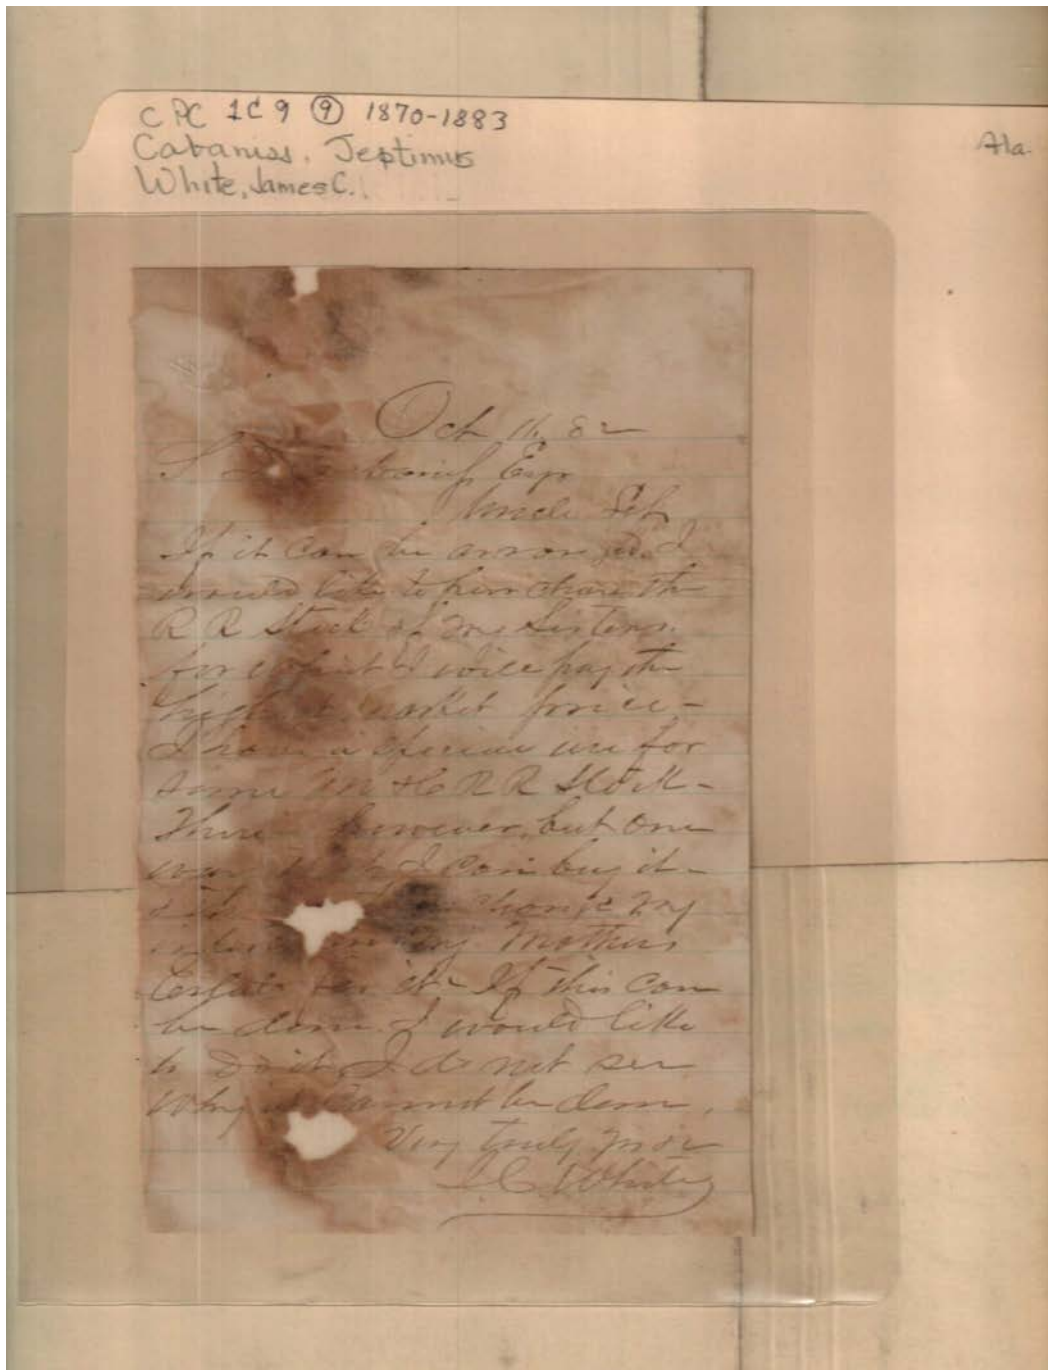 CPC 1C9 (9) 1870-1883
Ala.
Cabaniss, Septimus
White, James C.
Oct 11, 82
Esqr
Uncle Sep,
If it can be arranged I
would like to purchase the
R R Stock of my Sisters.
for which I will pay the
highest market price -
I have a special use for
some M & C R R Stock -
There however, but one
way I can buy it -
my
my Mothers
Estate for it - If this can
be done I would like
to do it, I do not see
why it cannot be done,
Very truly your
J C White